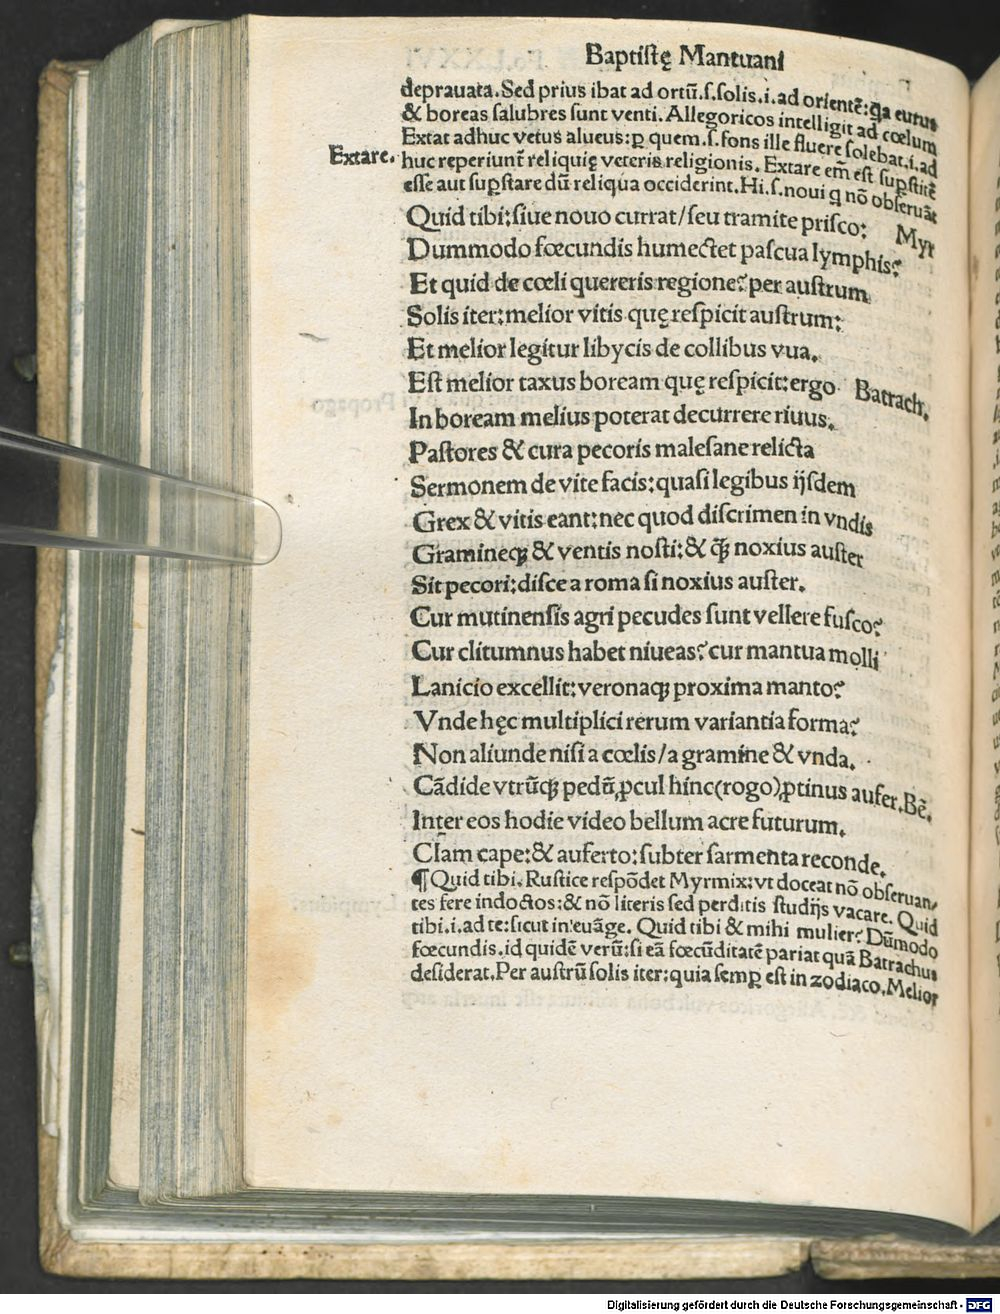 Baptistę Mantuani
deprauata. Sed prius ibat ad ortū.ſ.ſolis.i.ad orientē: qa eurus
& boreas ſalubres ſunt venti. Allegoricos intelligit ad cœlum
Extat adhuc vetus alueus: ꝑ quem.ſ.fons ille fluere ſolebat.i.ad
Extare. huc reperiunt̄ reliquię veteris religionis. Extare em̄ eſt ſuꝑſtitē
eſſe aut ſuꝑſtare dū reliqua occiderint. Hi.ſ.noui q nō obſeruāt
Quid tibi: ſiue nouo currat / ſeu tramite priſco: Myr
Dummodo fœcundis humectet paſcua lymphis?
Et quid de cœli quereris regione? per auſtrum
Solis iter: melior vitis quę reſpicit auſtrum:
Et melior legitur libycis de collibus vua.
Eſt melior taxus boream quę reſpicit: ergo Batrach.
In boream melius poterat decurrere riuus.
Paſtores & cura pecoris maleſane relicta
Sermonem de vite facis: quaſi legibus ijſdem
Grex & vitis eant: nec quod diſcrimen in vndis
Gramineqꝫ & ventis noſti: & q̄ꝫ noxius auſter
Sit pecori: diſce a roma ſi noxius auſter.
Cur mutinenſis agri pecudes ſunt vellere fuſco?
Cur clitumnus habet niueas? cur mantua molli
Lanicio excellit: veronaqꝫ proxima manto?
Vnde hęc multiplici rerum variantia forma?
Non aliunde niſi a cœlis / a gramine & vnda.
Cādide vtrūqꝫ pedū ꝓcul hinc (rogo) ꝓtinus aufer. Bē.
Inter eos hodie video bellum acre futurum.
Clam cape: & auferto: ſubter ſarmenta reconde.
¶ Quid tibi. Ruſtice reſpōdet Myrmix: vt doceat nō obſeruan/
tes fere indoctos: & nō literis ſed perditis ſtudijs vacare. Quid
tibi.i.ad te: ſicut in euāge. Quid tibi & mihi mulier? Dūmodo
fœcundis.id quidē verū: ſi eā fœcūditatē pariat quā Batrachus
deſiderat. Per auſtrū ſolis iter: quia ſemꝑ eſt in zodiaco. Melior
Digitalisierung gefördert durch die Deutsche Forschungsgemeinschaft - DFG